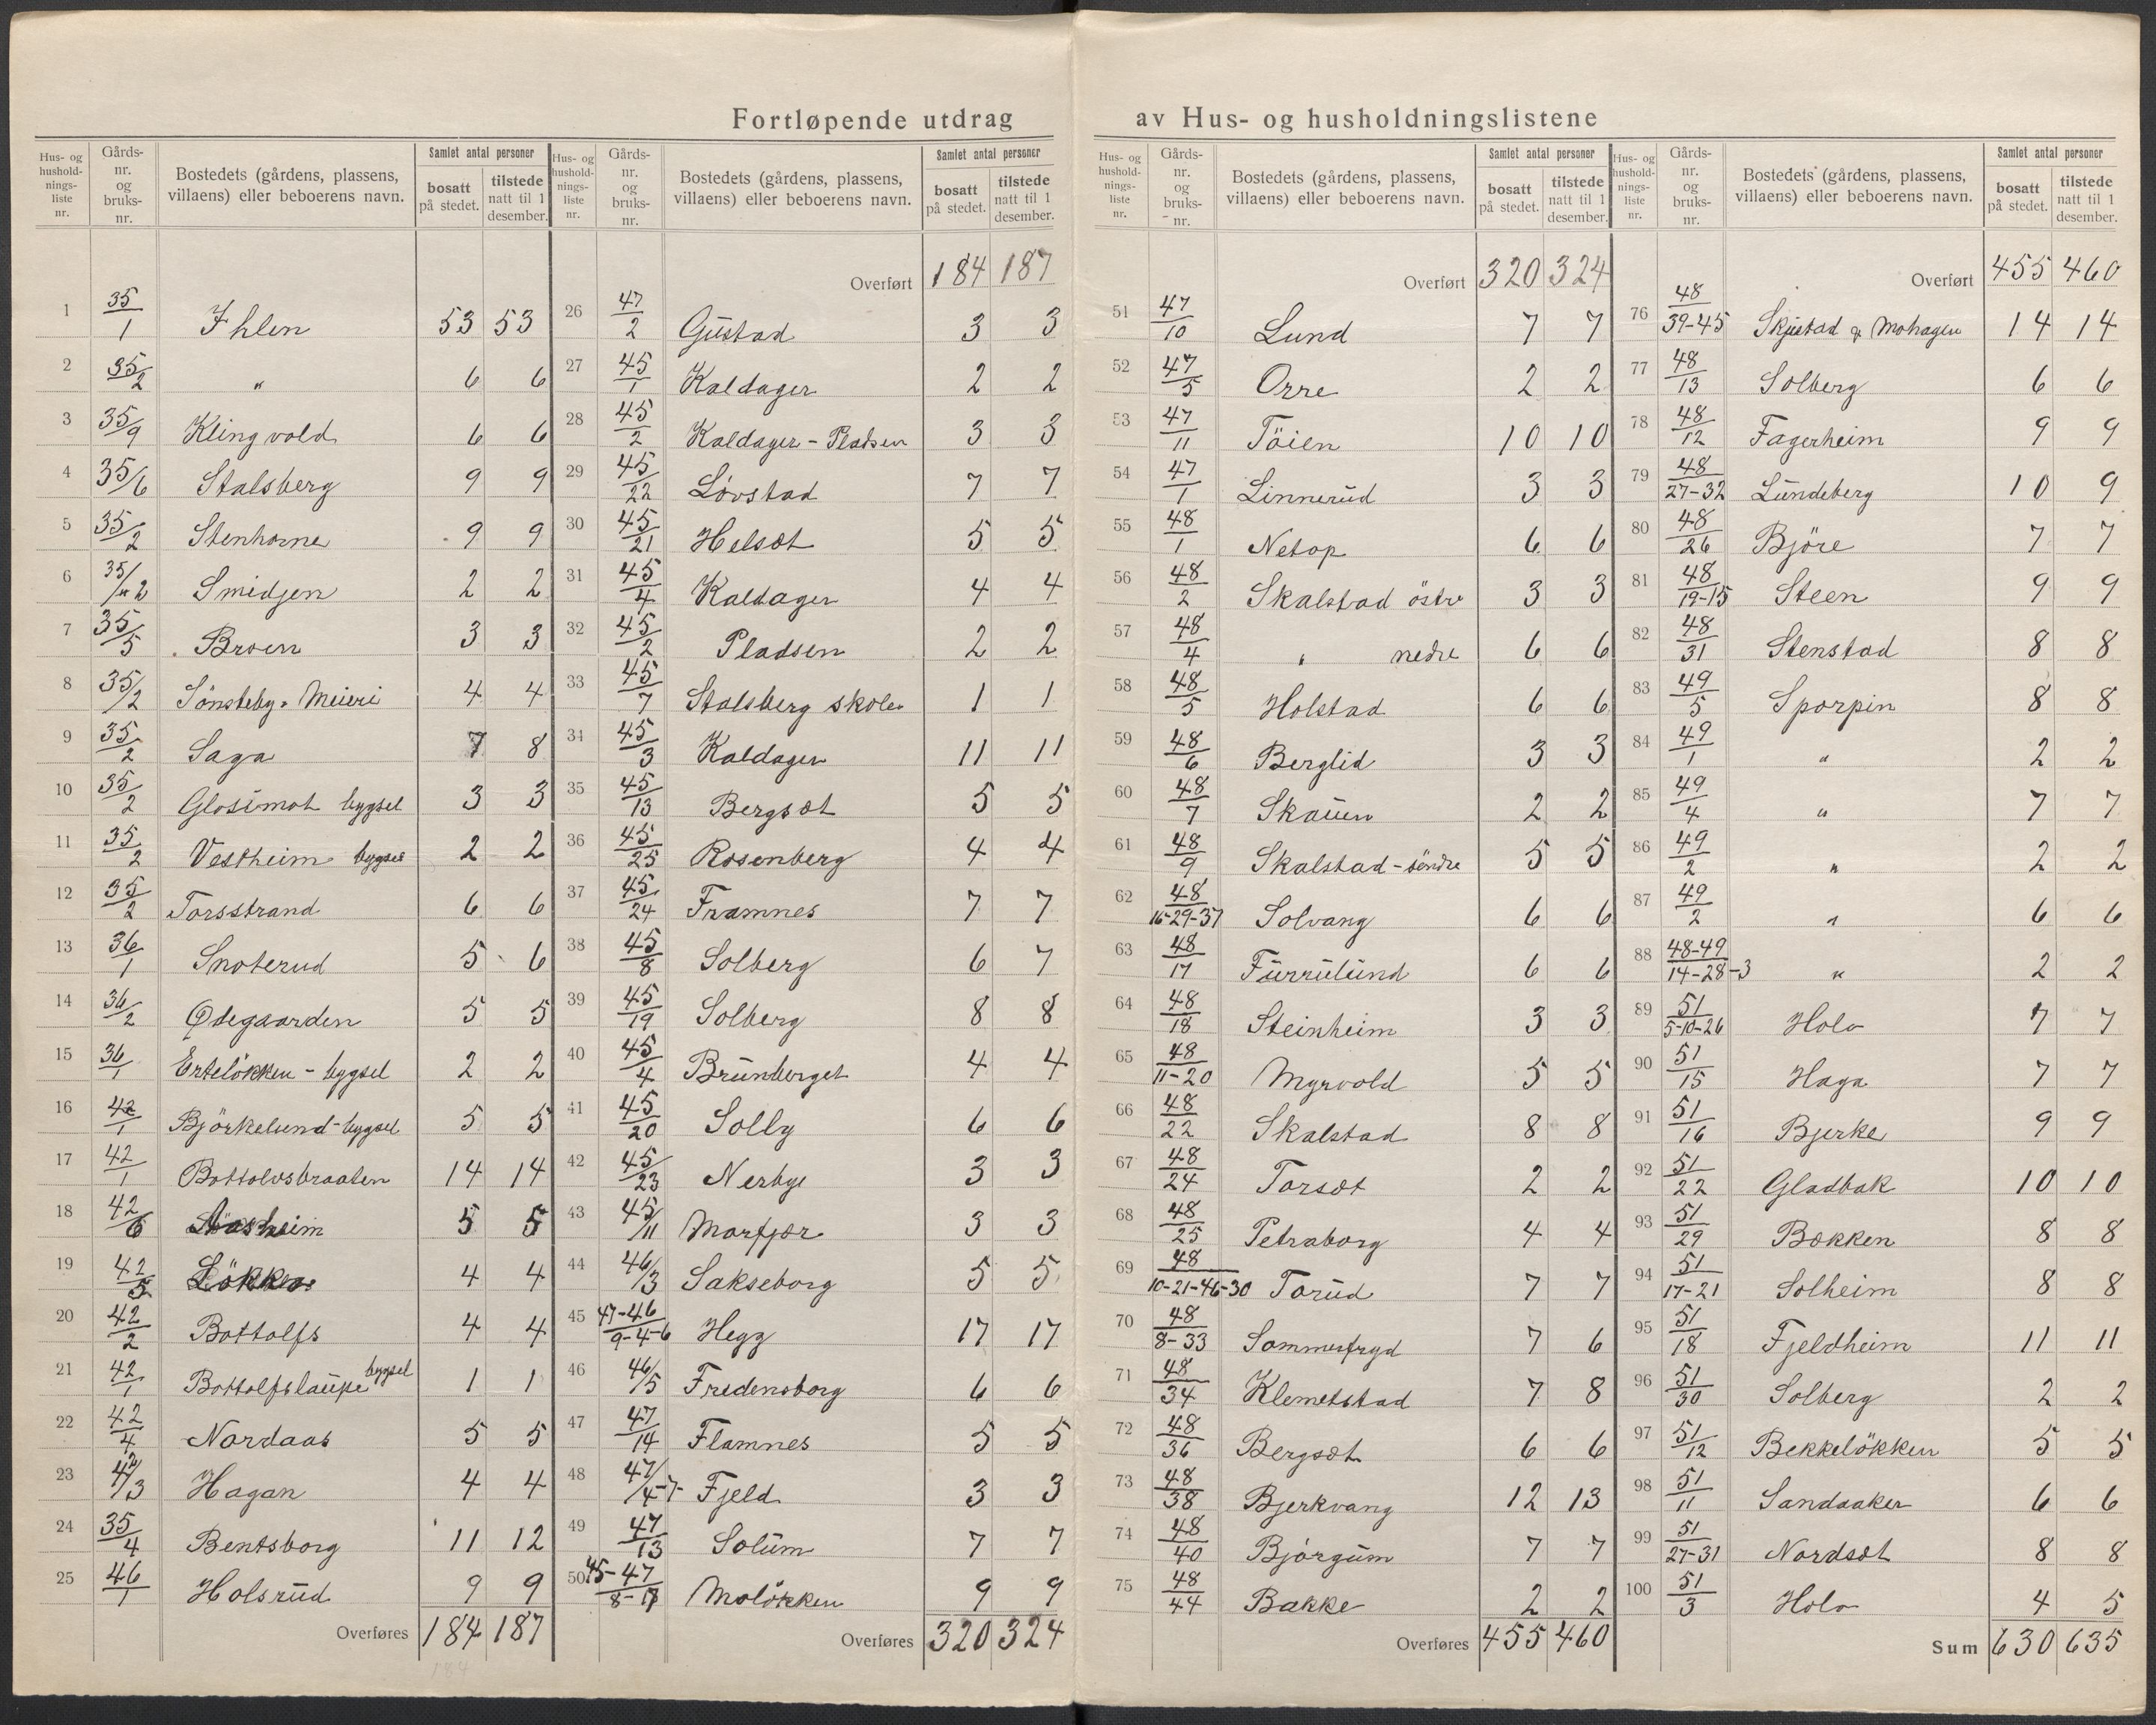 Fortløpende utdrag av Hus- og husholdningslistene
Hus- og husholdnings-liste nr. Gårds-nr. og bruks-nr. Bostedets (gårdens, plassens, villaens) eller beboerens navn. Samlet antal personer bosatt på stedet. tilstede natt til 1 desember.
1 35/1 Ihlen 53 53
2 35/2 " 6 6
3 35/9 Klingvold 6 6
4 35/6 Stalsberg 9 9
5 35/2 Stenhorne 9 9
6 35/"2 Smidjen 2 2
7 35/5 Broen 3 3
8 35/2 Sönsteby. Meieri 4 4
9 35/2 Saga 7 8
10 35/2 Glosimot bygsel 3 3
11 35/2 Vestheim bygsel 2 2
12 35/2 Torsstrand 6 6
13 36/1 Snoterud 5 6
14 36/2 Ødegaarden 5 5
15 36/1 Ertelökken - bygsel 2 2
16 42/1 Björkelund - bygsel 5 5
17 42/1 Bottolvsbraaten 14 14
18 42/6 Aasheim 5 5
19 42/5 Lökken 4 4
20 42/2 Bottolfs 4 4
21 42/1 Bottolfslaupe bygsel 1 1
22 42/4 Nordaas 5 5
23 42/3 Hagan 4 4
24 35/4 Bentsborg 11 12
25 46/1 Holsrud 9 9
Overføres 184 187
184
Hus- og husholdnings-liste nr. Gårds-nr. og bruks-nr. Bostedets (gårdens, plassens, villaens) eller beboerens navn. Samlet antal personer bosatt på stedet. tilstede natt til 1 desember.
Overført 184 187
26 47/2 Gustad 3 3
27 45/1 Kaldager 2 2
28 45/2 Kaldager - Pladsen 3 3
29 45/22 Lövstad 7 7
30 45/21 Helsæt 5 5
31 45/4 Kaldager 4 4
32 45/2 Pladsen 2 2
33 45/7 Stalsberg skole 1 1
34 45/3 Kaldager 11 11
35 45/13 Bergsæt 5 5
36 45/25 Rosenberg 4 4
37 45/24 Framnes 7 7
38 45/8 Solberg 6 7
39 45/19 Solberg 8 8
40 45/4 Brunberget 4 4
41 45/20 Solby 6 6
42 45/23 Nerbye 3 3
43 45/11 Marfjær 3 3
44 46/3 Sakseborg 5 5
45 47-46/9-4-6 Hegg 17 17
46 46/5 Fredensborg 6 6
47 47/14 Flamnes 5 5
48 47/4-7 Fjeld 3 3
49 47/13 Solum 7 7
50 45-47/8-17 Molökken 9 9
Overføres 320 324
Hus- og husholdnings-liste nr. Gårds-nr. og bruks-nr. Bostedets (gårdens, plassens, villaens) eller beboerens navn. Samlet antal personer bosatt på stedet. tilstede natt til 1 desember.
Overført 320 324
51 47/10 Lund 7 7
52 47/5 Orre 2 2
53 47/11 Töien 10 10
54 47/1 Linnerud 3 3
55 48/1 Netop 6 6
56 48/2 Skalstad östre 3 3
57 48/4 " nedre 6 6
58 48/5 Holstad 6 6
59 48/6 Berglid 3 3
60 48/7 Skauen 2 2
61 48/9 Skalstad - söndre 5 5
62 48/16-29-37 Solvang 6 6
63 48/17 Furrulund 6 6
64 48/18 Steinheim 3 3
65 48/11-20 Myrvold 5 5
66 48/22 Skalstad 8 8
67 48/24 Torsæt 2 2
68 48/25 Petraborg 4 4
69 48/10-21-46-30 Torud 7 7
70 48/8-33 Sommerfryd 7 6
71 48/34 Klemetstad 7 8
72 48/36 Bergsæt 6 6
73 48/38 Bjerkvang 12 13
74 48/40 Bjørgum 7 7
75 48/44 Bakke 2 2
Overføres 455 460
Hus- og husholdnings-liste nr. Gårds-nr. og bruks-nr. Bostedets (gårdens, plassens, villaens) eller beboerens navn. Samlet antal personer bosatt på stedet. tilstede natt til 1 desember.
Overført 455 460
76 48/39-45 Skjustad & Mohagen 14 14
77 48/13 Solberg 6 6
78 48/12 Fagerheim 9 9
79 48/27-32 Lundeberg 10 9
80 48/26 Björe 7 7
81 48/19-15 Steen 9 9
82 48/31 Stenstad 8 8
83 49/5 Sporpin 8 8
84 49/1 " 2 2
85 49/4 " 7 7
86 49/2 " 2 2
87 49/2 " 6 6
88 48-49/14-28-3 " 2 2
89 51/5-10-26 Holo 7 7
90 51/15 Haga 7 7
91 51/16 Bjerke 9 9
92 51/22 Gladbak 10 10
93 51/29 Bækken 8 8
94 51/17-21 Solheim 8 8
95 51/18 Fjeldheim 11 11
96 51/30 Solberg 2 2
97 51/12 Bekkelökken 5 5
98 51/11 Sandaaker 6 6
99 51/27-31 Nordsæt 8 8
100 51/3 Holo 4 5
Sum 630 635